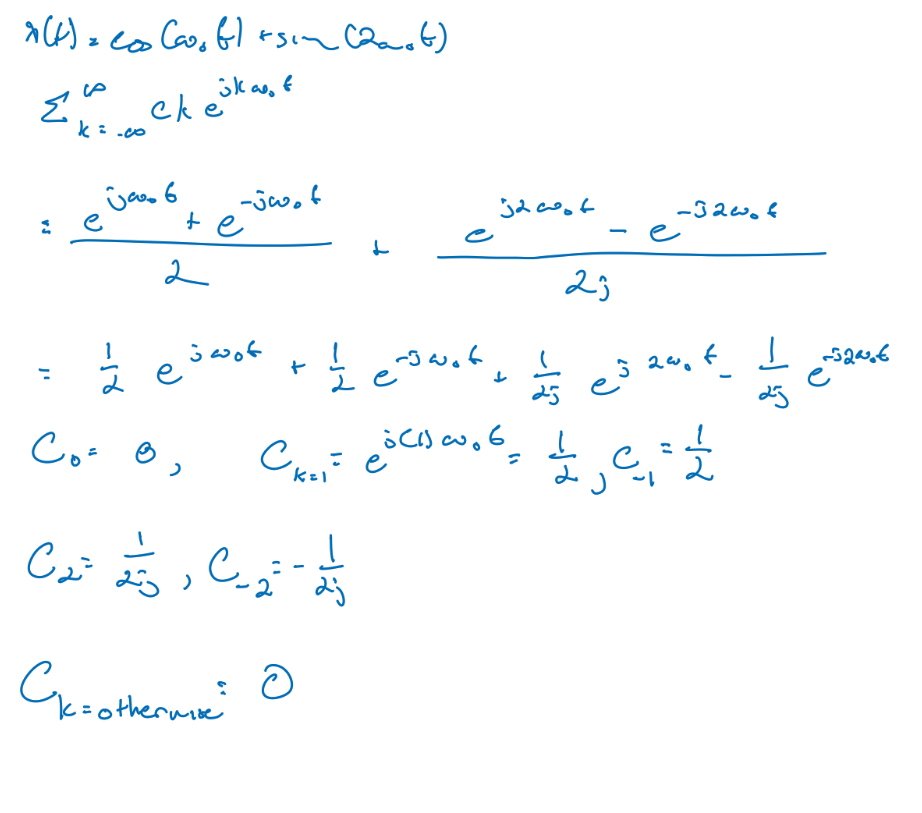 x(t) = cos(ω₀t) + sin(2ω₀t)
Σ_{k=-∞}^{∞} ck e^{jkω₀t}
= (e^{jω₀t} + e^{-jω₀t})/2 + (e^{j2ω₀t} - e^{-j2ω₀t})/2j
= 1/2 e^{jω₀t} + 1/2 e^{-jω₀t} + 1/2j e^{j2ω₀t} - 1/2j e^{-j2ω₀t}
C₀ = 0, C_{k=1} = e^{j(1)ω₀t} = 1/2, C_{-1} = 1/2
C₂ = 1/2j, C_{-2} = -1/2j
C_{k=otherwise} = 0